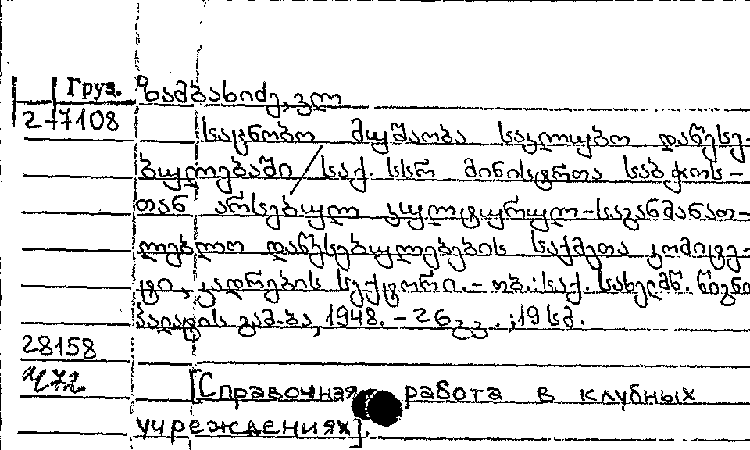 Груз. ზამბახიძე, ვლ
2-7108
საცნობო მუშაობა საკლუბო დაწესე-
ბულებაში / საქ. სსრ მინისტრთა საბჭოს-
თან არსებულ კულტურულ-საგანმანათ-
ლებლო დაწესებულებების საქმეთა კომიტე-
ტი, კადრების სექტორი. - თბ.: საქ. სახელმწ. წიგნი
პალატის გამ-ბა, 1948. - 26 გვ. ; 19 სმ.
28158
[Справочная работа в клубных
учреждениях].